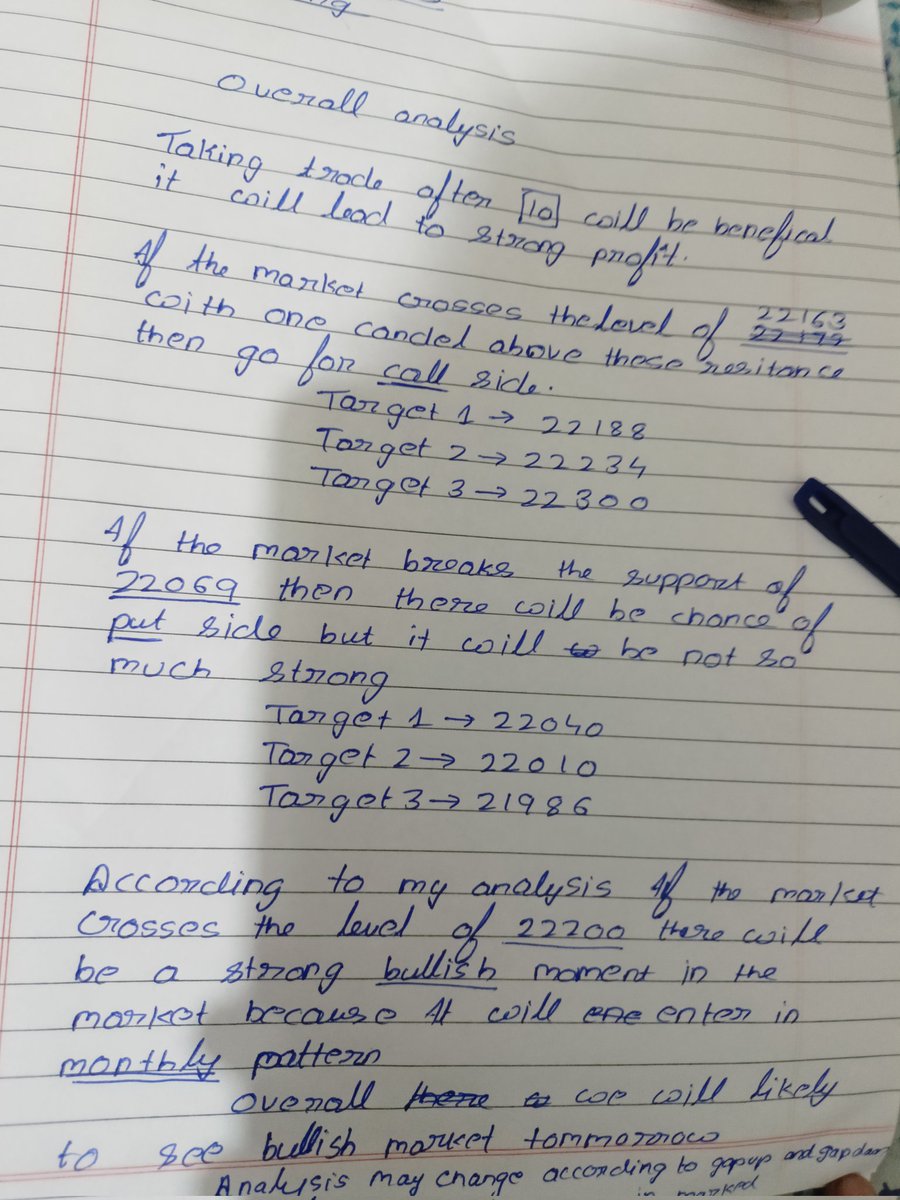 ng
Overall analysis
Taking trade after 10 will be benefical
it will lead to strong profit.
If the market crosses the level of 22163
with one candel above these resitance
then go for call side.
Target 1 → 22188
Target 2 → 22234
Target 3 → 22300
If the market breaks the support of
22069 then there will be chance of
put side but it will to be not so
much strong
Target 1 → 22040
Target 2 → 22010
Target 3 → 21986
According to my analysis If the market
crosses the level of 22200 there will
be a strong bullish moment in the
market because It will ene enter in
monthly pattern
Overall there we will likely
to see bullish market tommorrow
Analysis may change according to gapup and gapdown
in marked